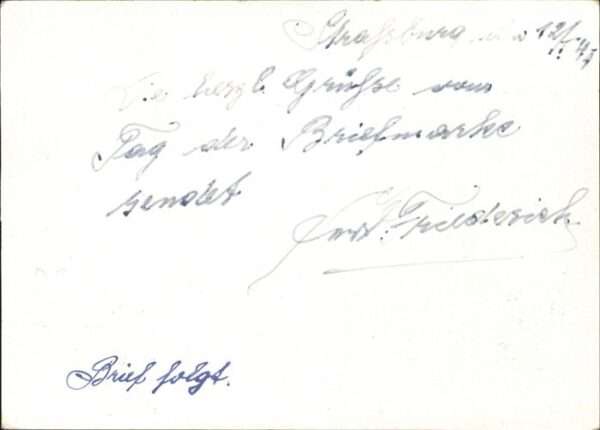 Straßburg, den 12/1. 41
Die herzl. Grüße vom
Tag der Briefmarke
sendet
Friederich
Brief folgt.